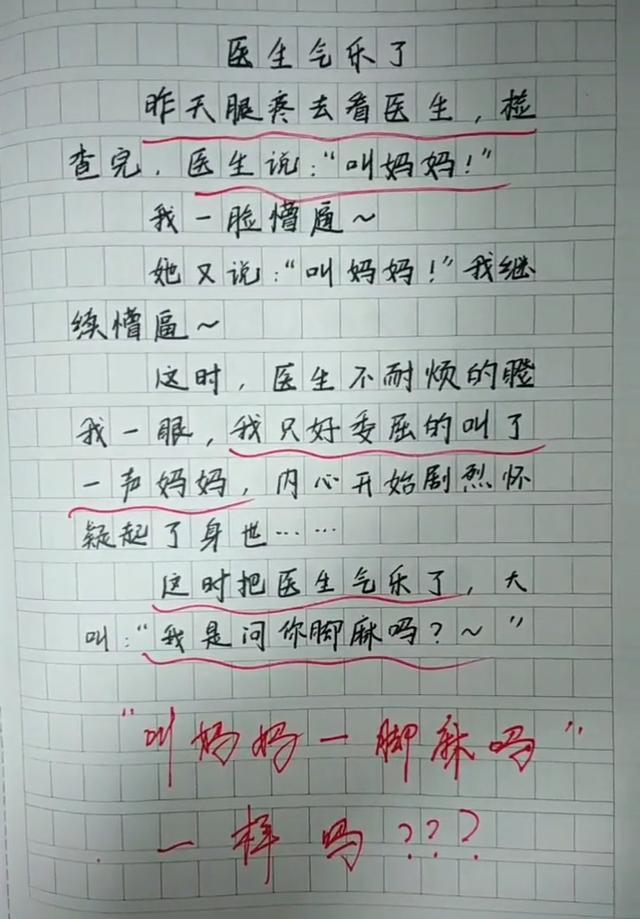 医生气乐了
昨天眼疼去看医生，检
查完，医生说：“叫妈妈！”
我一脸懵逼～
她又说：“叫妈妈！”我继
续懵逼～
这时，医生不耐烦的瞪
我一眼，我只好委屈的叫了
一声妈妈，内心开始剧烈怀
疑起了身世……
这时把医生气乐了，大
叫：“我是问你脚麻吗？～”
“叫妈妈一脚麻吗”
一样吗？？？